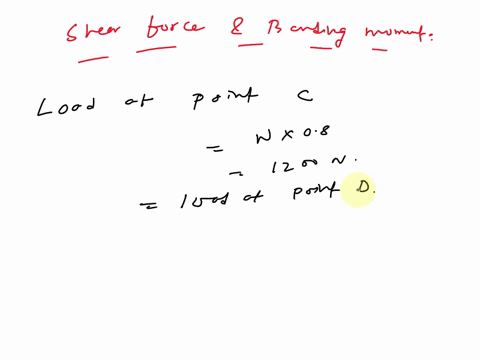 Shear force & Bending moment.
Load at point C
= W x 0.8
= 1200 N.
= load at point D.